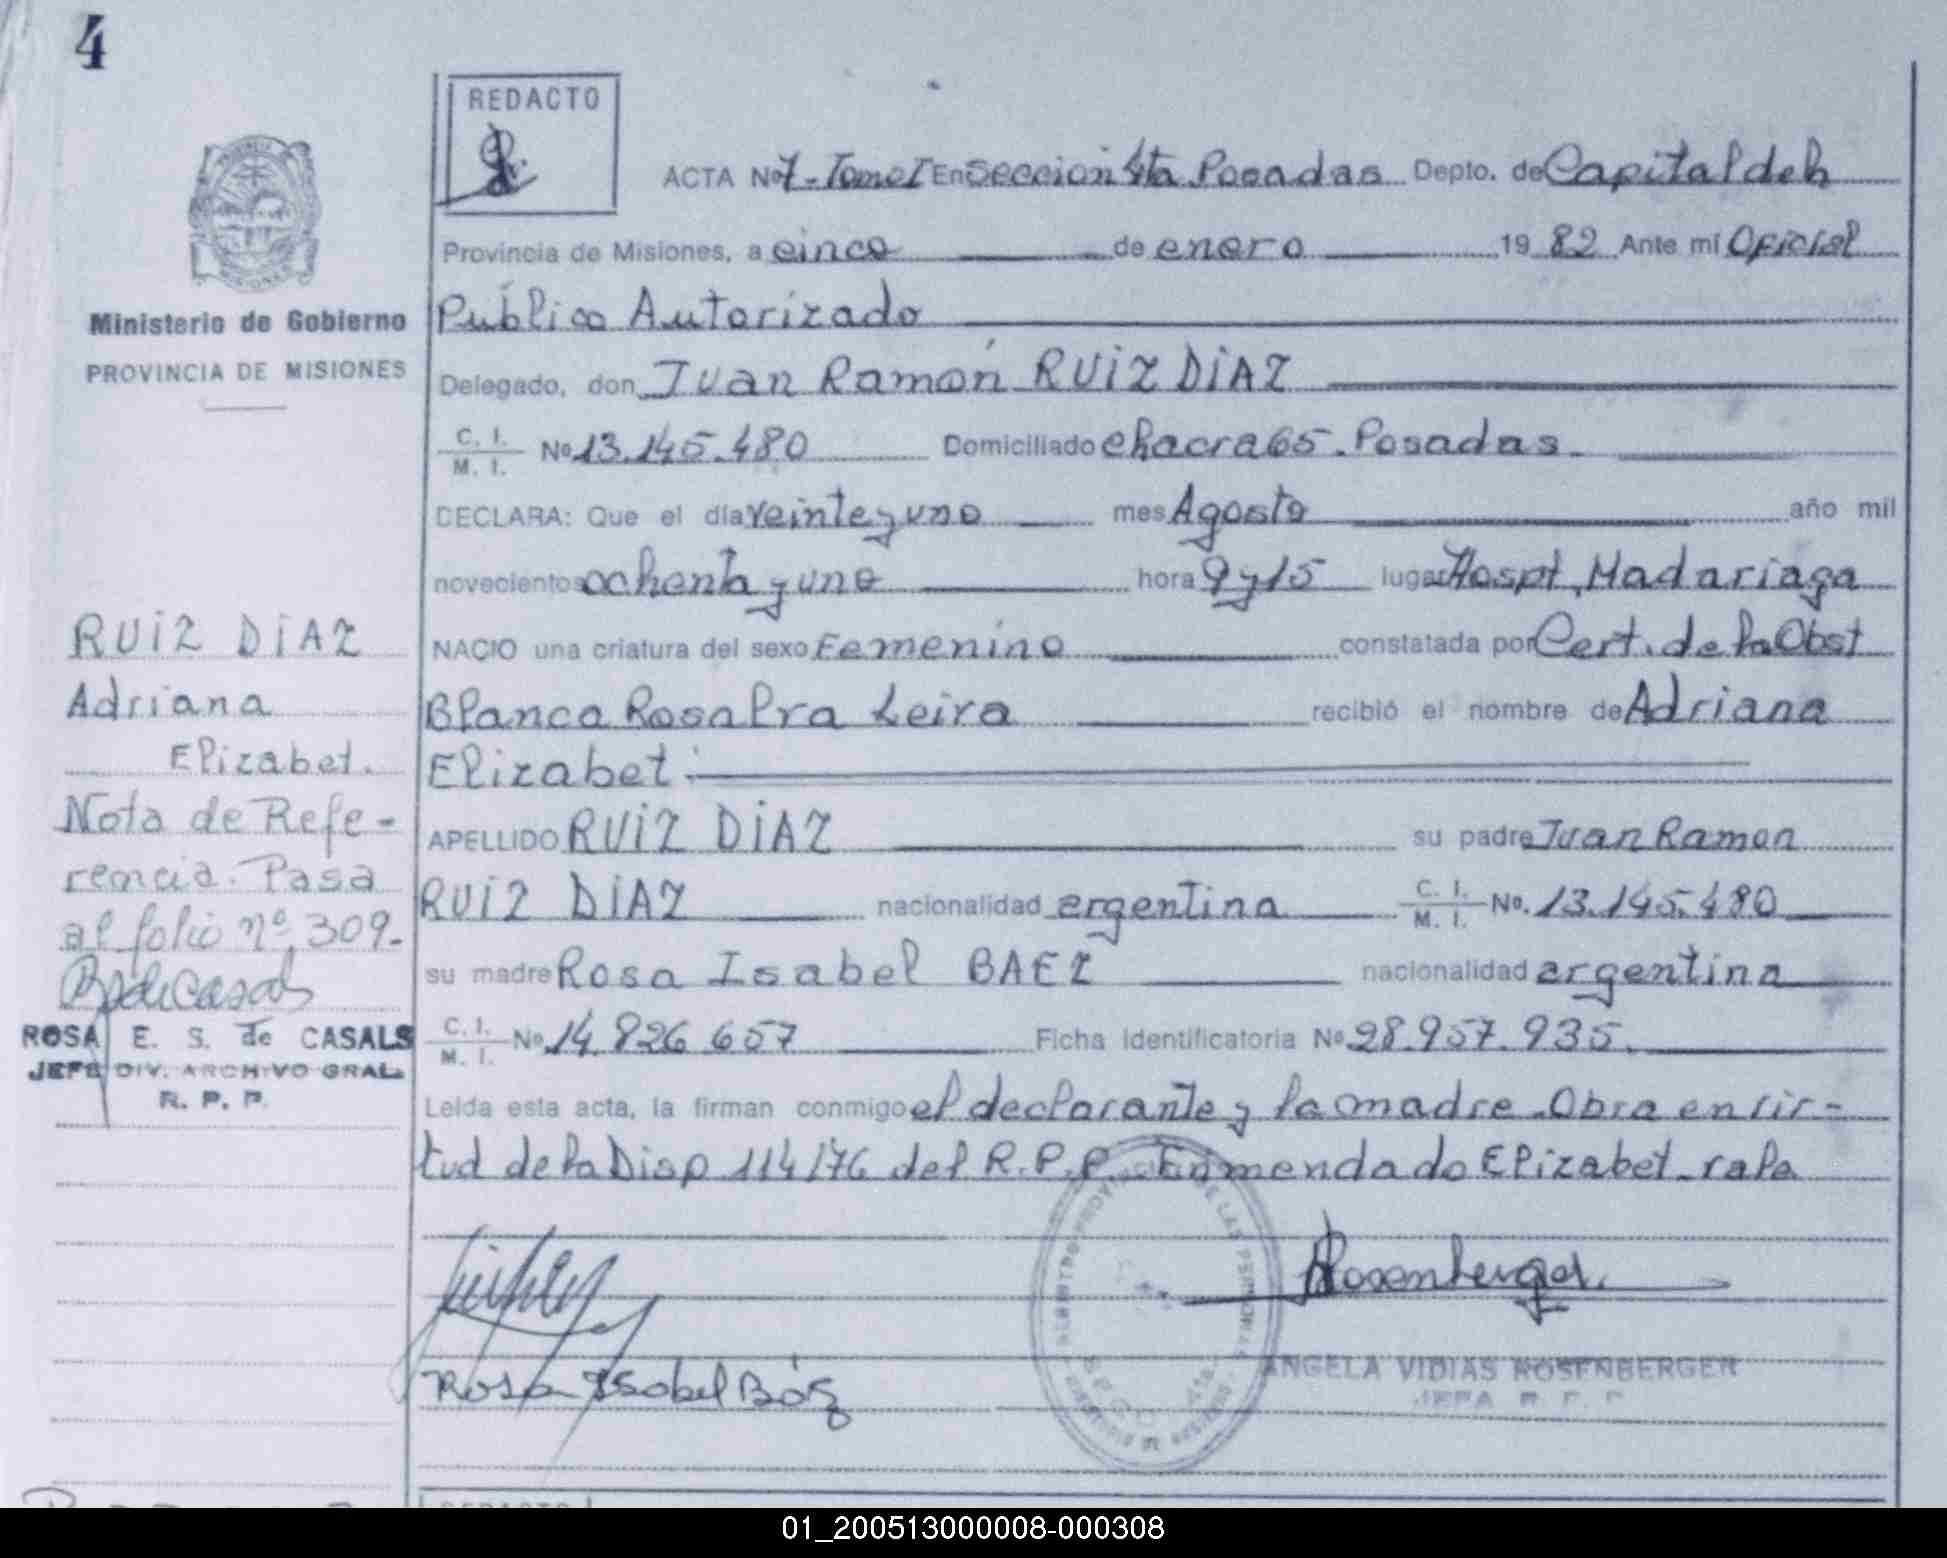 4
REDACTO
ACTA Nº 7 - Tomo I En Sección 4ta Posadas Depto. de Capital de la
Provincia de Misiones, a cinco de enero 19 82 Ante mí Oficial
Público Autorizado
Delegado, don Juan Ramón RUIZ DIAZ
C. I.
M. I. Nº 13.145.480 Domiciliado chacra 65. Posadas.
DECLARA: Que el día veinte y uno mes Agosto año mil
novecientos ochenta y uno hora 9 y 15 lugar Hospt. Madariaga
NACIO una criatura del sexo Femenino constatada por Cert. de la Obst
Blanca Rosalpra Leira recibió el nombre de Adriana
Elizabet
APELLIDO RUIZ DIAZ su padre Juan Ramon
RUIZ DIAZ nacionalidad argentina C. I.
M. I. No. 13.145.480
su madre Rosa Isabel BAEZ nacionalidad argentina
C. I.
M. I. Nº 14.826.657 Ficha Identificatoria Nº 28.957.935.
Leída esta acta, la firman conmigo el declarante y la madre. Obra en vir-
tud de la Disp 114/76 del R.P.P. Enmendado Elizabet - vale
Rosenberger
Rosa Isabel Báez
ANGELA VIDIAS ROSENBERGER
JEFA R. P. P
Ministerio de Gobierno
PROVINCIA DE MISIONES
RUIZ DIAZ
Adriana
Elizabet.
Nota de Refe-
rencia. Pasa
al folio nº 309-
ROSA E. S. de CASALS
JEFE DIV. ARCHIVO GRAL.
R. P. P.
REDACTO
01_200513000008-000308